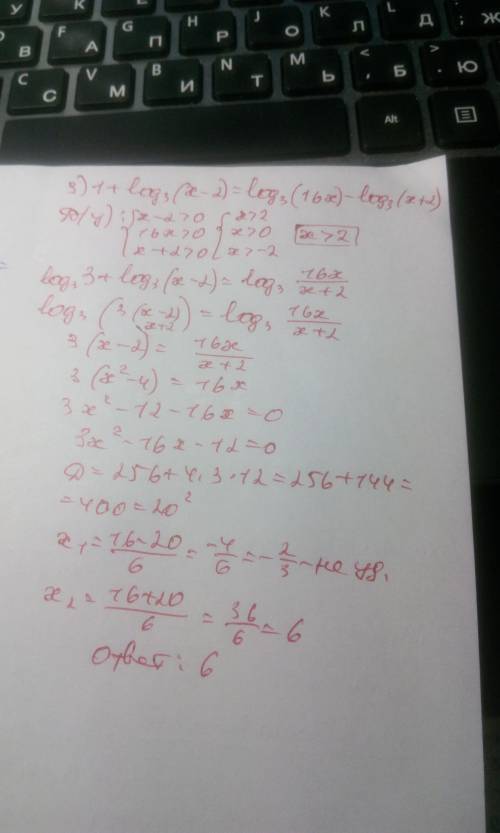 У K Л L Д ; Ж
В F А G П H Р J О
C С V М B И N Т M Ь < , Б > . Ю
Alt
3) 1 + log₃(x-2) = log₃(16x) - log₃(x+2)
D(y): { x-2>0 { x>2
16x>0 x>0 x>2
x+2>0 x>-2
log₃3 + log₃(x-2) = log₃ 16x/(x+2)
log₃(3(x-2)) = log₃ 16x/(x+2)
x+2
3(x-2) = 16x/(x+2)
3(x²-4) = 16x
3x²-12-16x=0
3x²-16x-12=0
D=256+4·3·12=256+144=
=400=20²
x₁ = (16-20)/6 = -4/6 = -2/3 - не уд.
x₂ = (16+20)/6 = 36/6 = 6
Ответ: 6